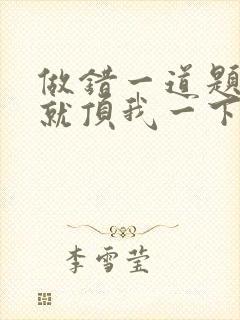 做错一道题
就頂我一下
李雪莹